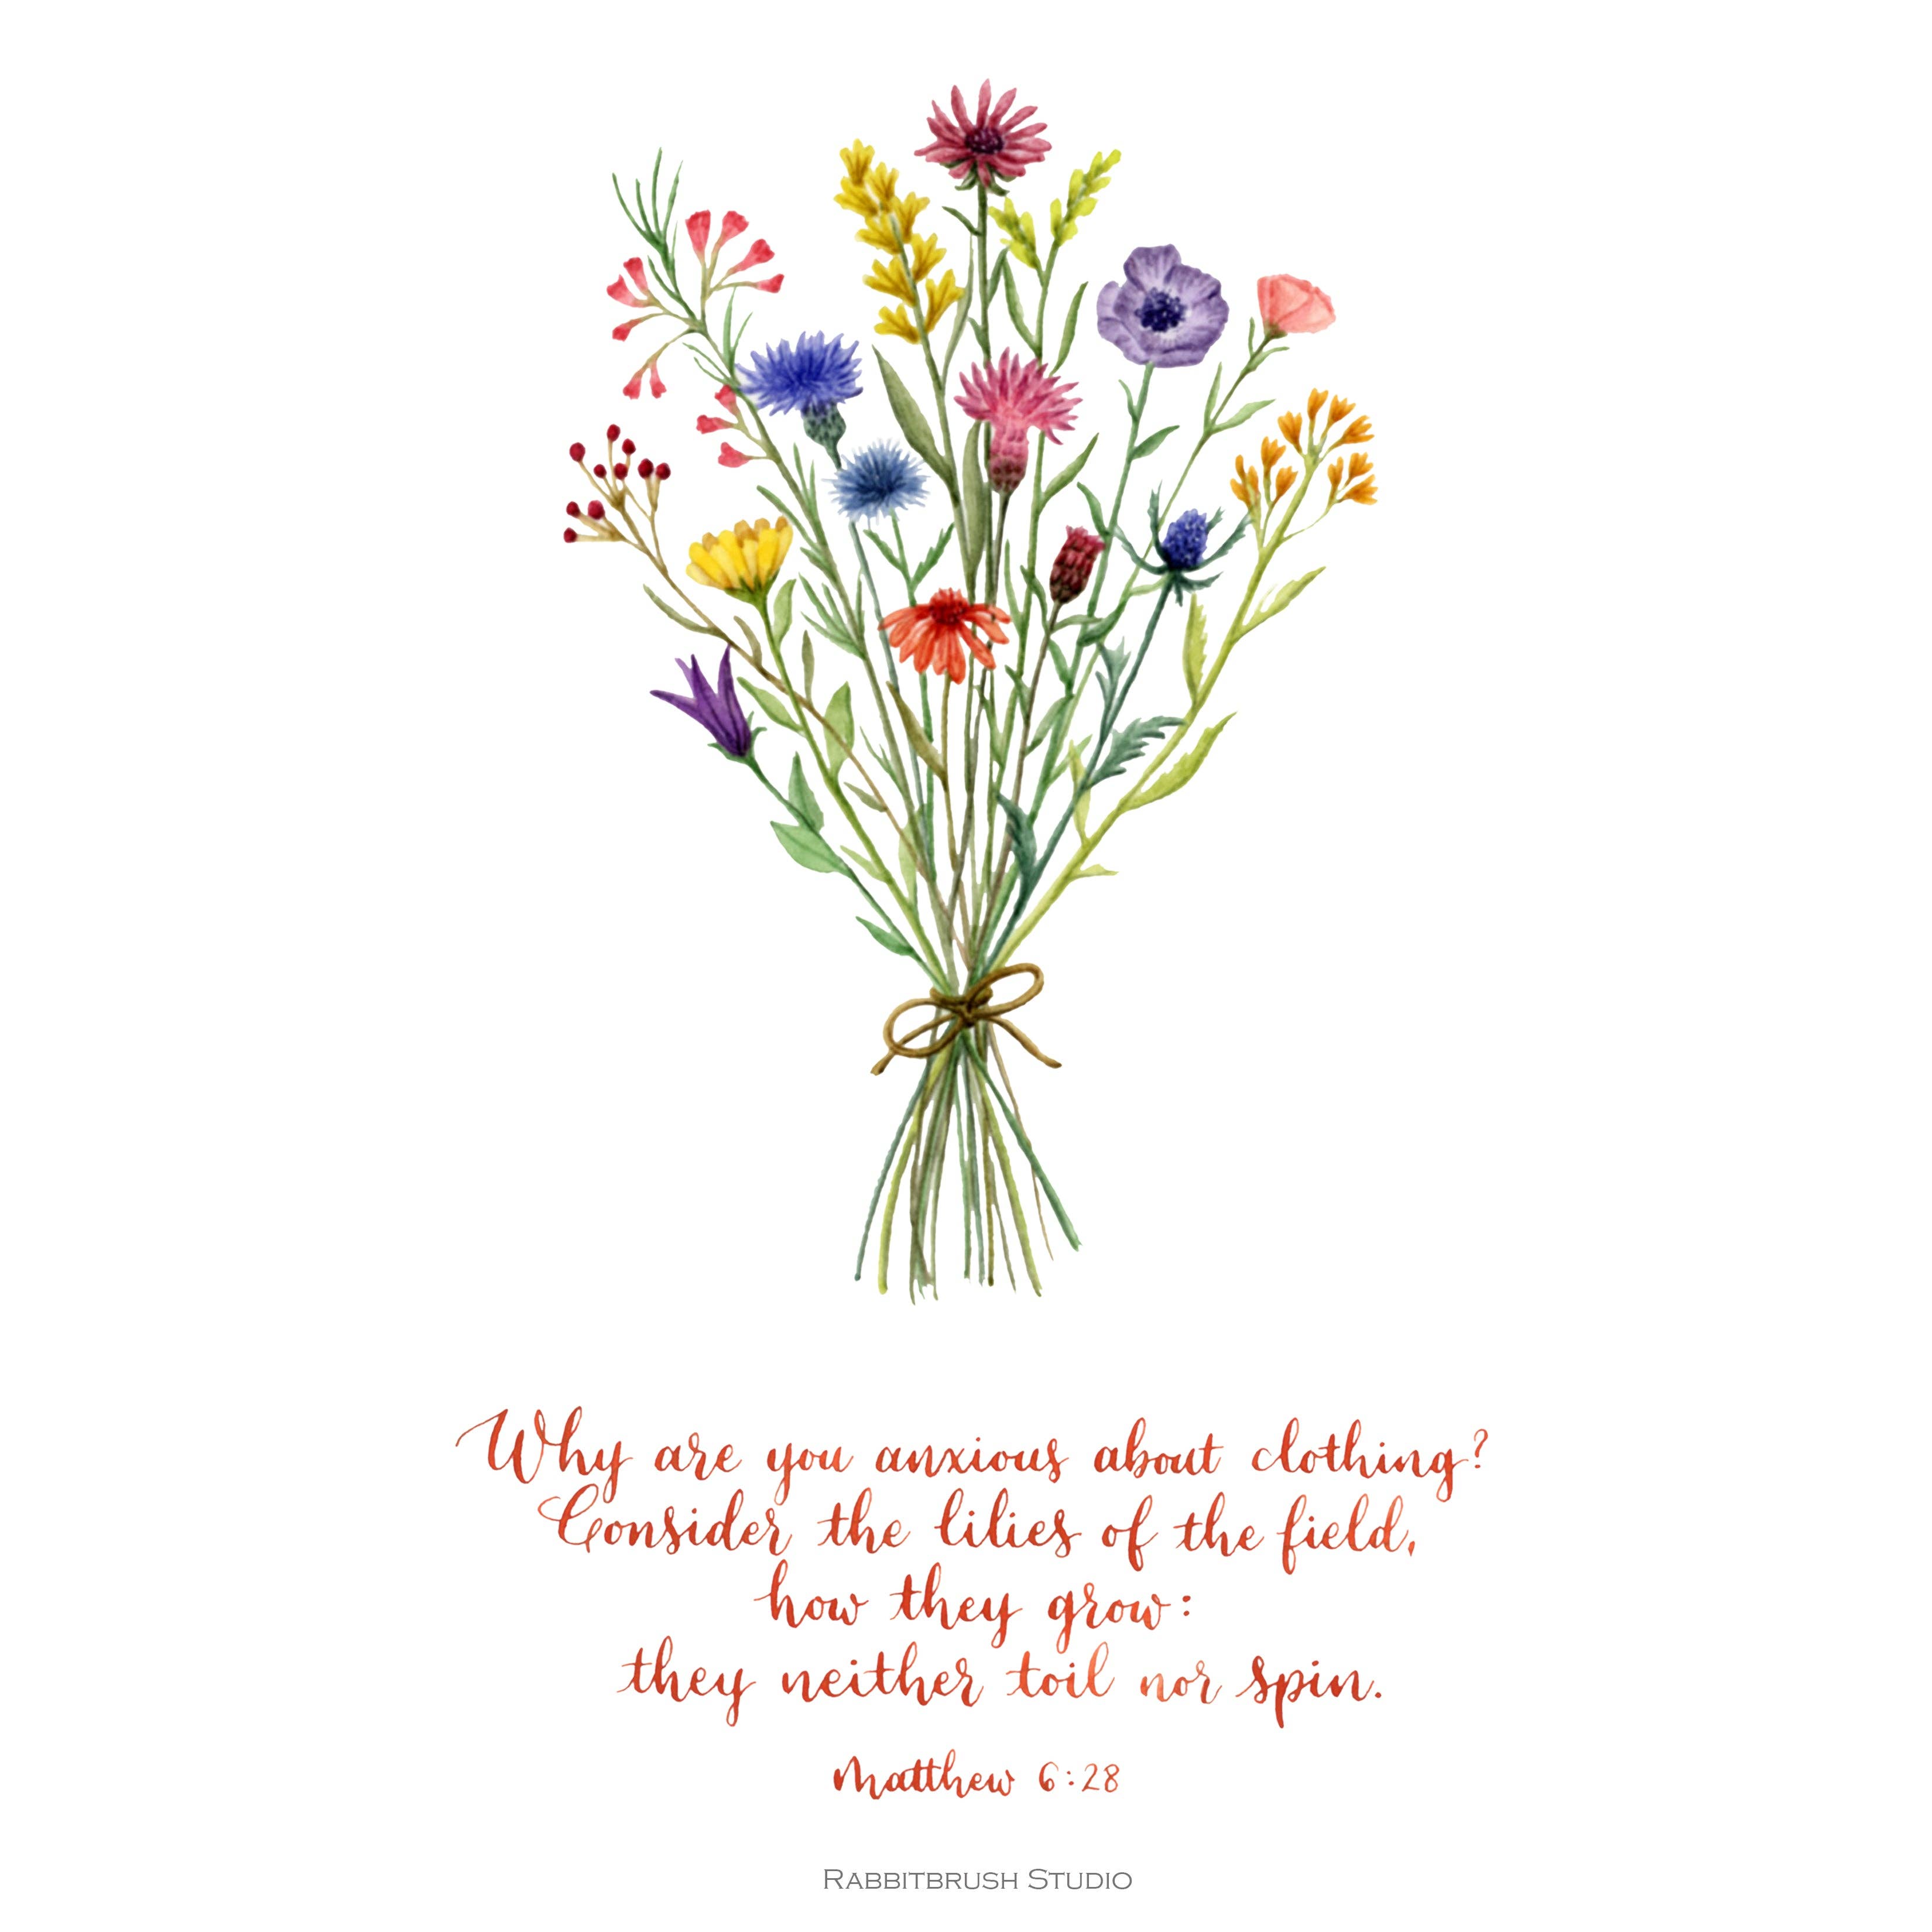 Why are you anxious about clothing?
Consider the lilies of the field,
how they grow:
they neither toil nor spin.
Matthew 6:28
RABBITBRUSH STUDIO